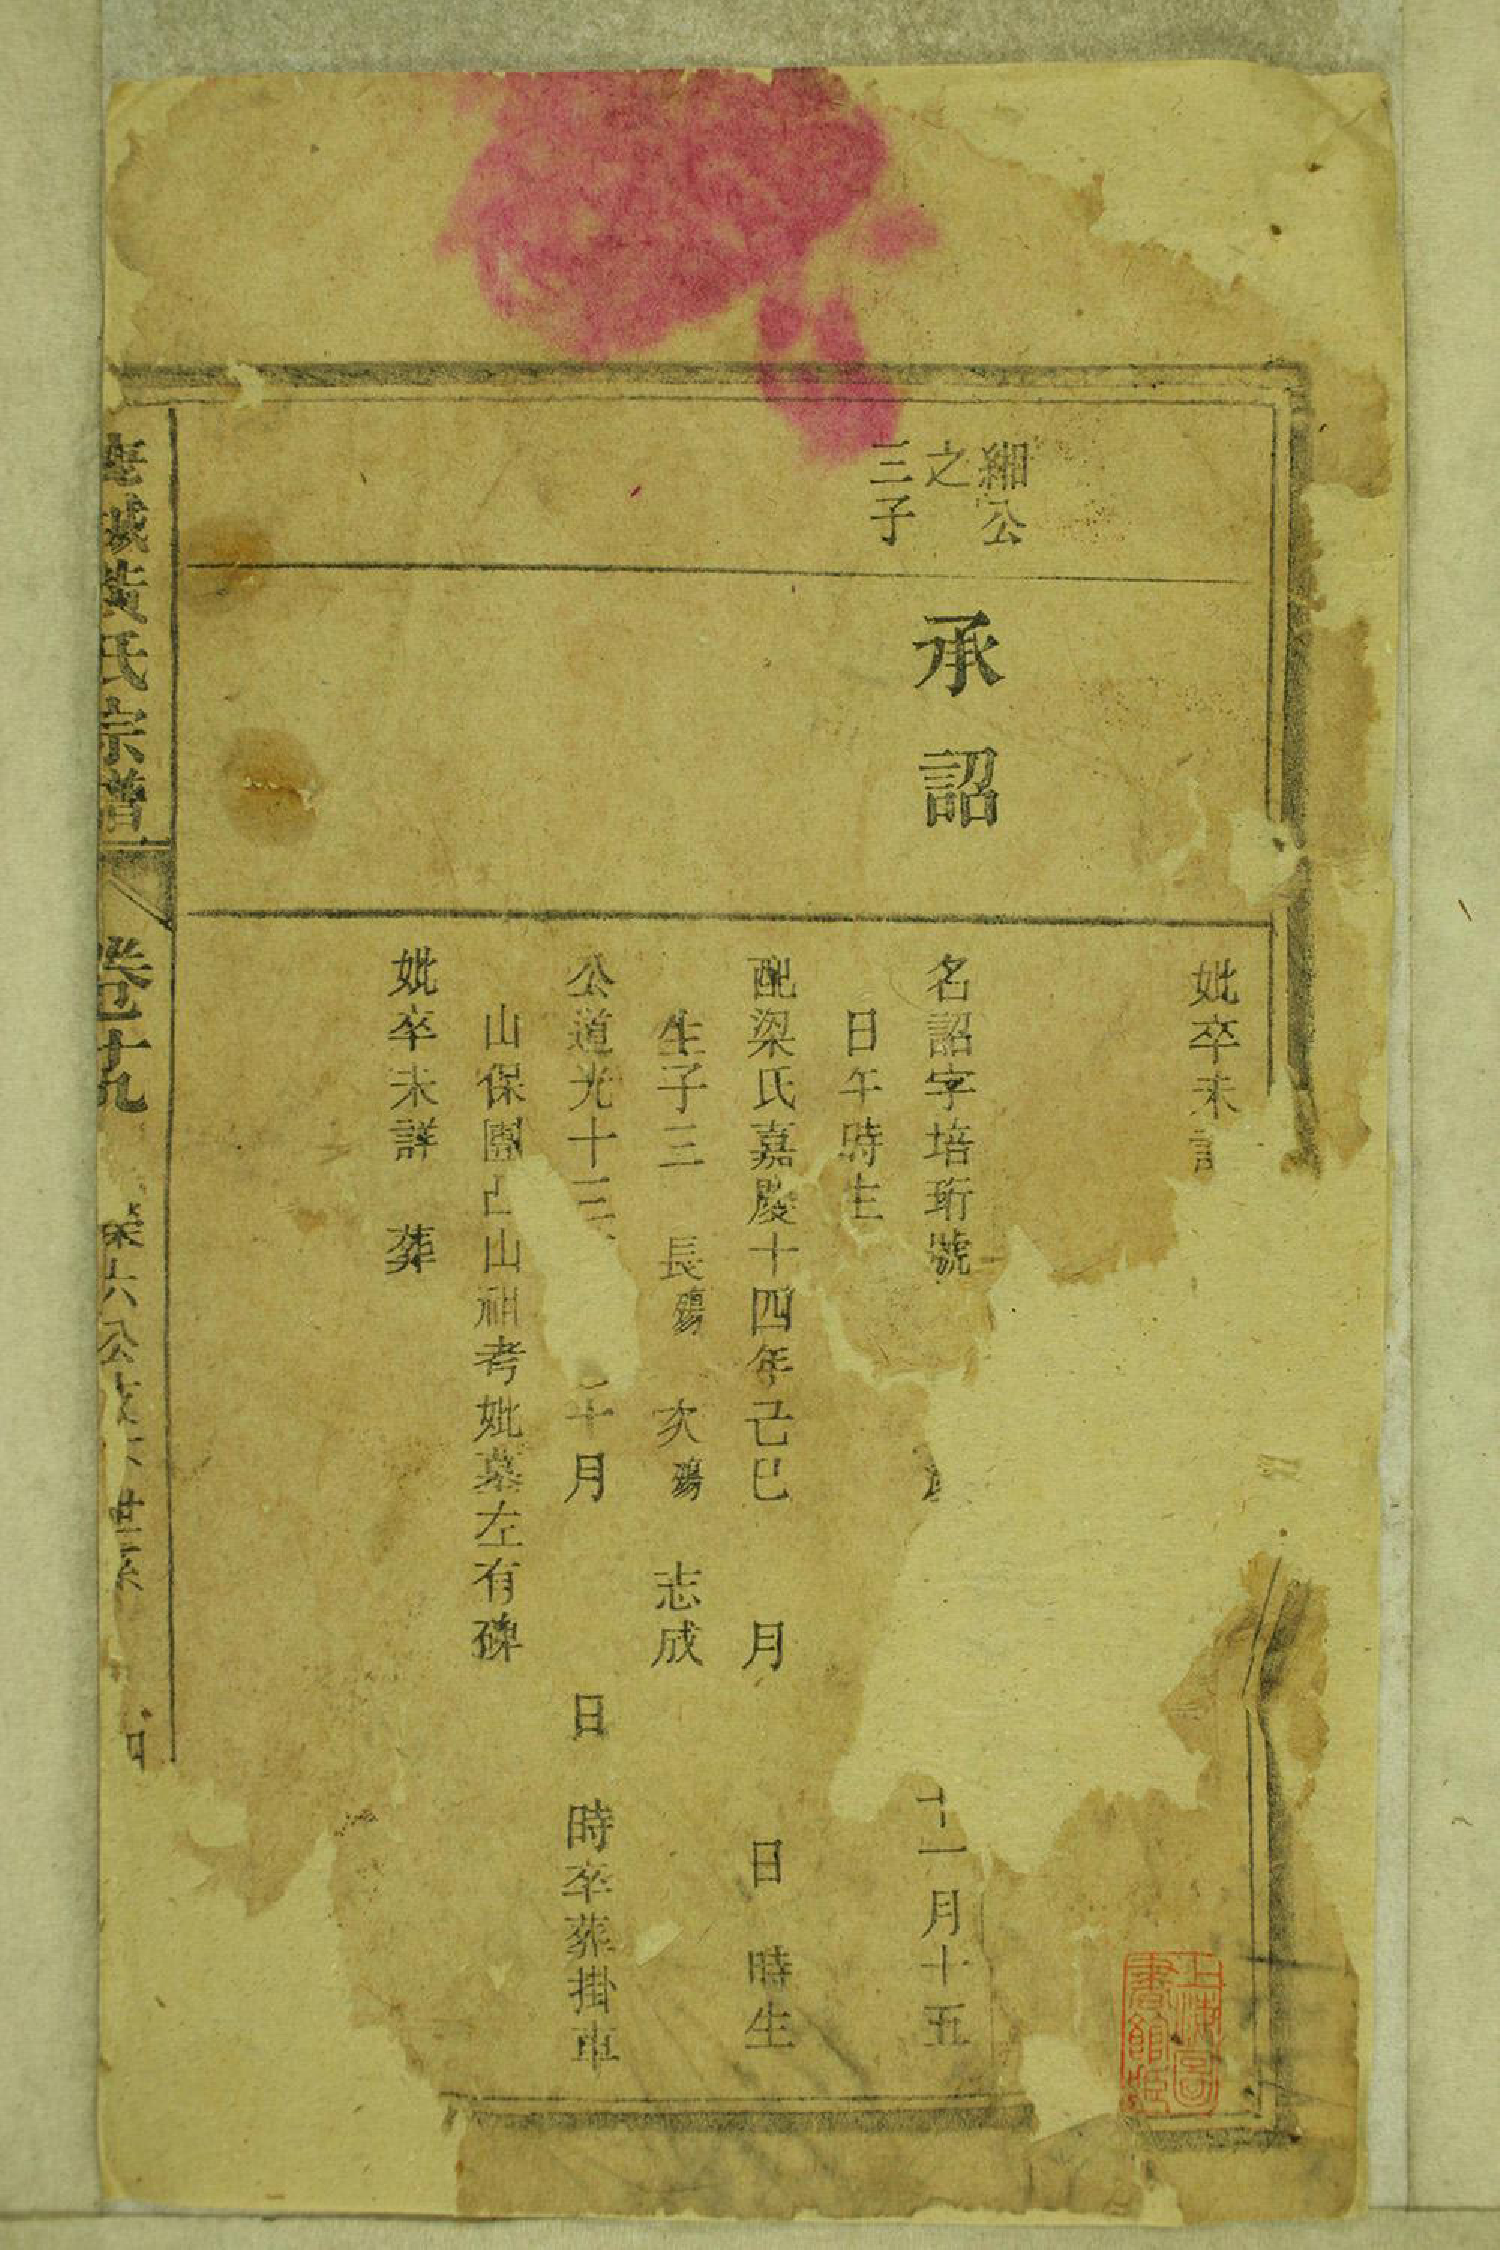 妣卒未
緗公
之
三子
承詔
名詔字培珩號
十一月十五
日午時生
配梁氏嘉慶十四年己巳 月 日 時生
生子三 長殤 次殤 志成
公道光十三
十月 日 時卒葬掛車
山保團
山祖考妣墓左有碑
妣卒未詳 葬
黃氏宗譜
卷十九
六公
世系
上海圖
書館藏